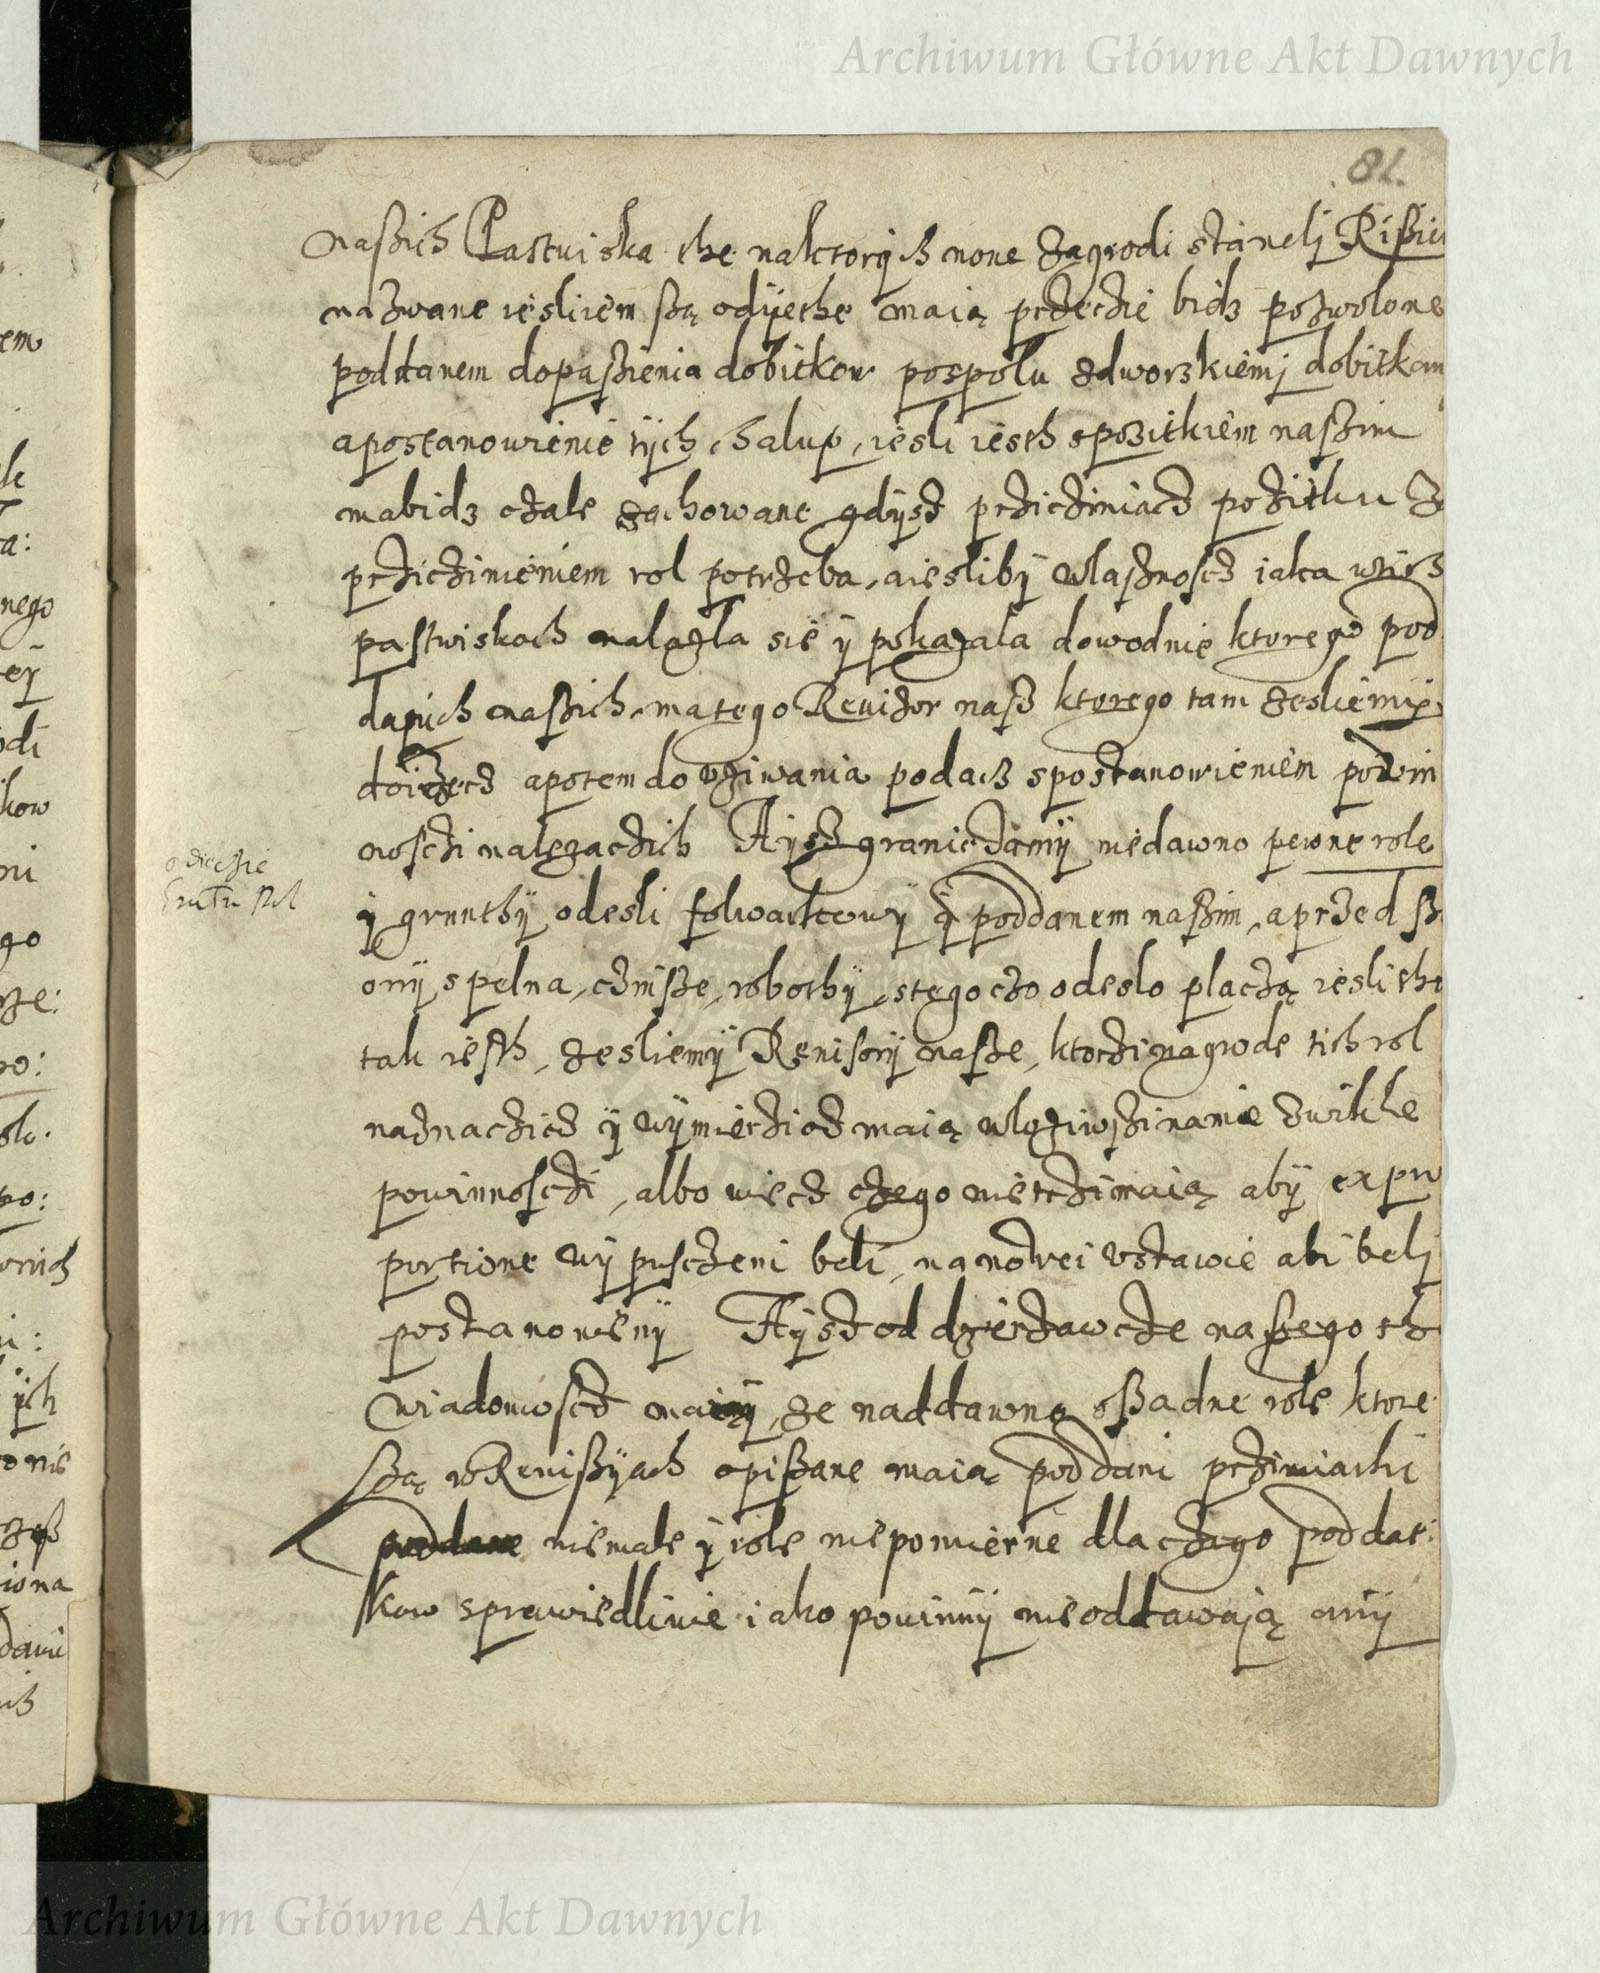 Archiwum Główne Akt Dawnych
81.
naßich Pastwiska the naktorych none zagrodi stanelj
nazwane iesliiem są odyethe maią przeczie bidz pozwolone
poddanem dopaßienia dobitkow pospolu zdworskiemj dobitkam
apostanowienie tych chalup, iesli iesth spozitkiem naszim
mabidz czale zachowane gdysz przicziniacz pozitku z
prziczinieniem rol potrzeba, aiesliby wlasznoscz iaka
pastwiskach nalazla sie y pokazala dowodnie ktorego pod
danich naßich, matego Reuizor nasz ktorego tam zesliemy
doizrecz apotem do vziwania podacz spostanowieniem powin
nosczi nalezaczich Aysz graniczamy niedawno pewne role
y grunthy odesli folwarkowy y poddanem naßim, aprzed ß
ony spelna, czinsze, robothy, stego czo odeslo placzą iesli tho
tak iesth, zesliemy Reuisory nasze, ktorzi nagrode tich rol
naznaczicz y wymierzicz maią wloziwszi nanie zwikle
powinnosczi, albo wiecz czego nietrzimaią aby ex pro
portione wypusczeni beli, na nowei vstawie abi belj
postanowieny Aysz od dzierzawcze naszego
wiadomoscz maią, ze naddawne oßadne role ktore
są w Reuißyach opißane maią poddani przimiarki
niemale y role niepomierne dla czego poddat
kow sprawiedliwie iako powinny nieoddawaią any
odieczie
Archiwum Główne Akt Dawnych